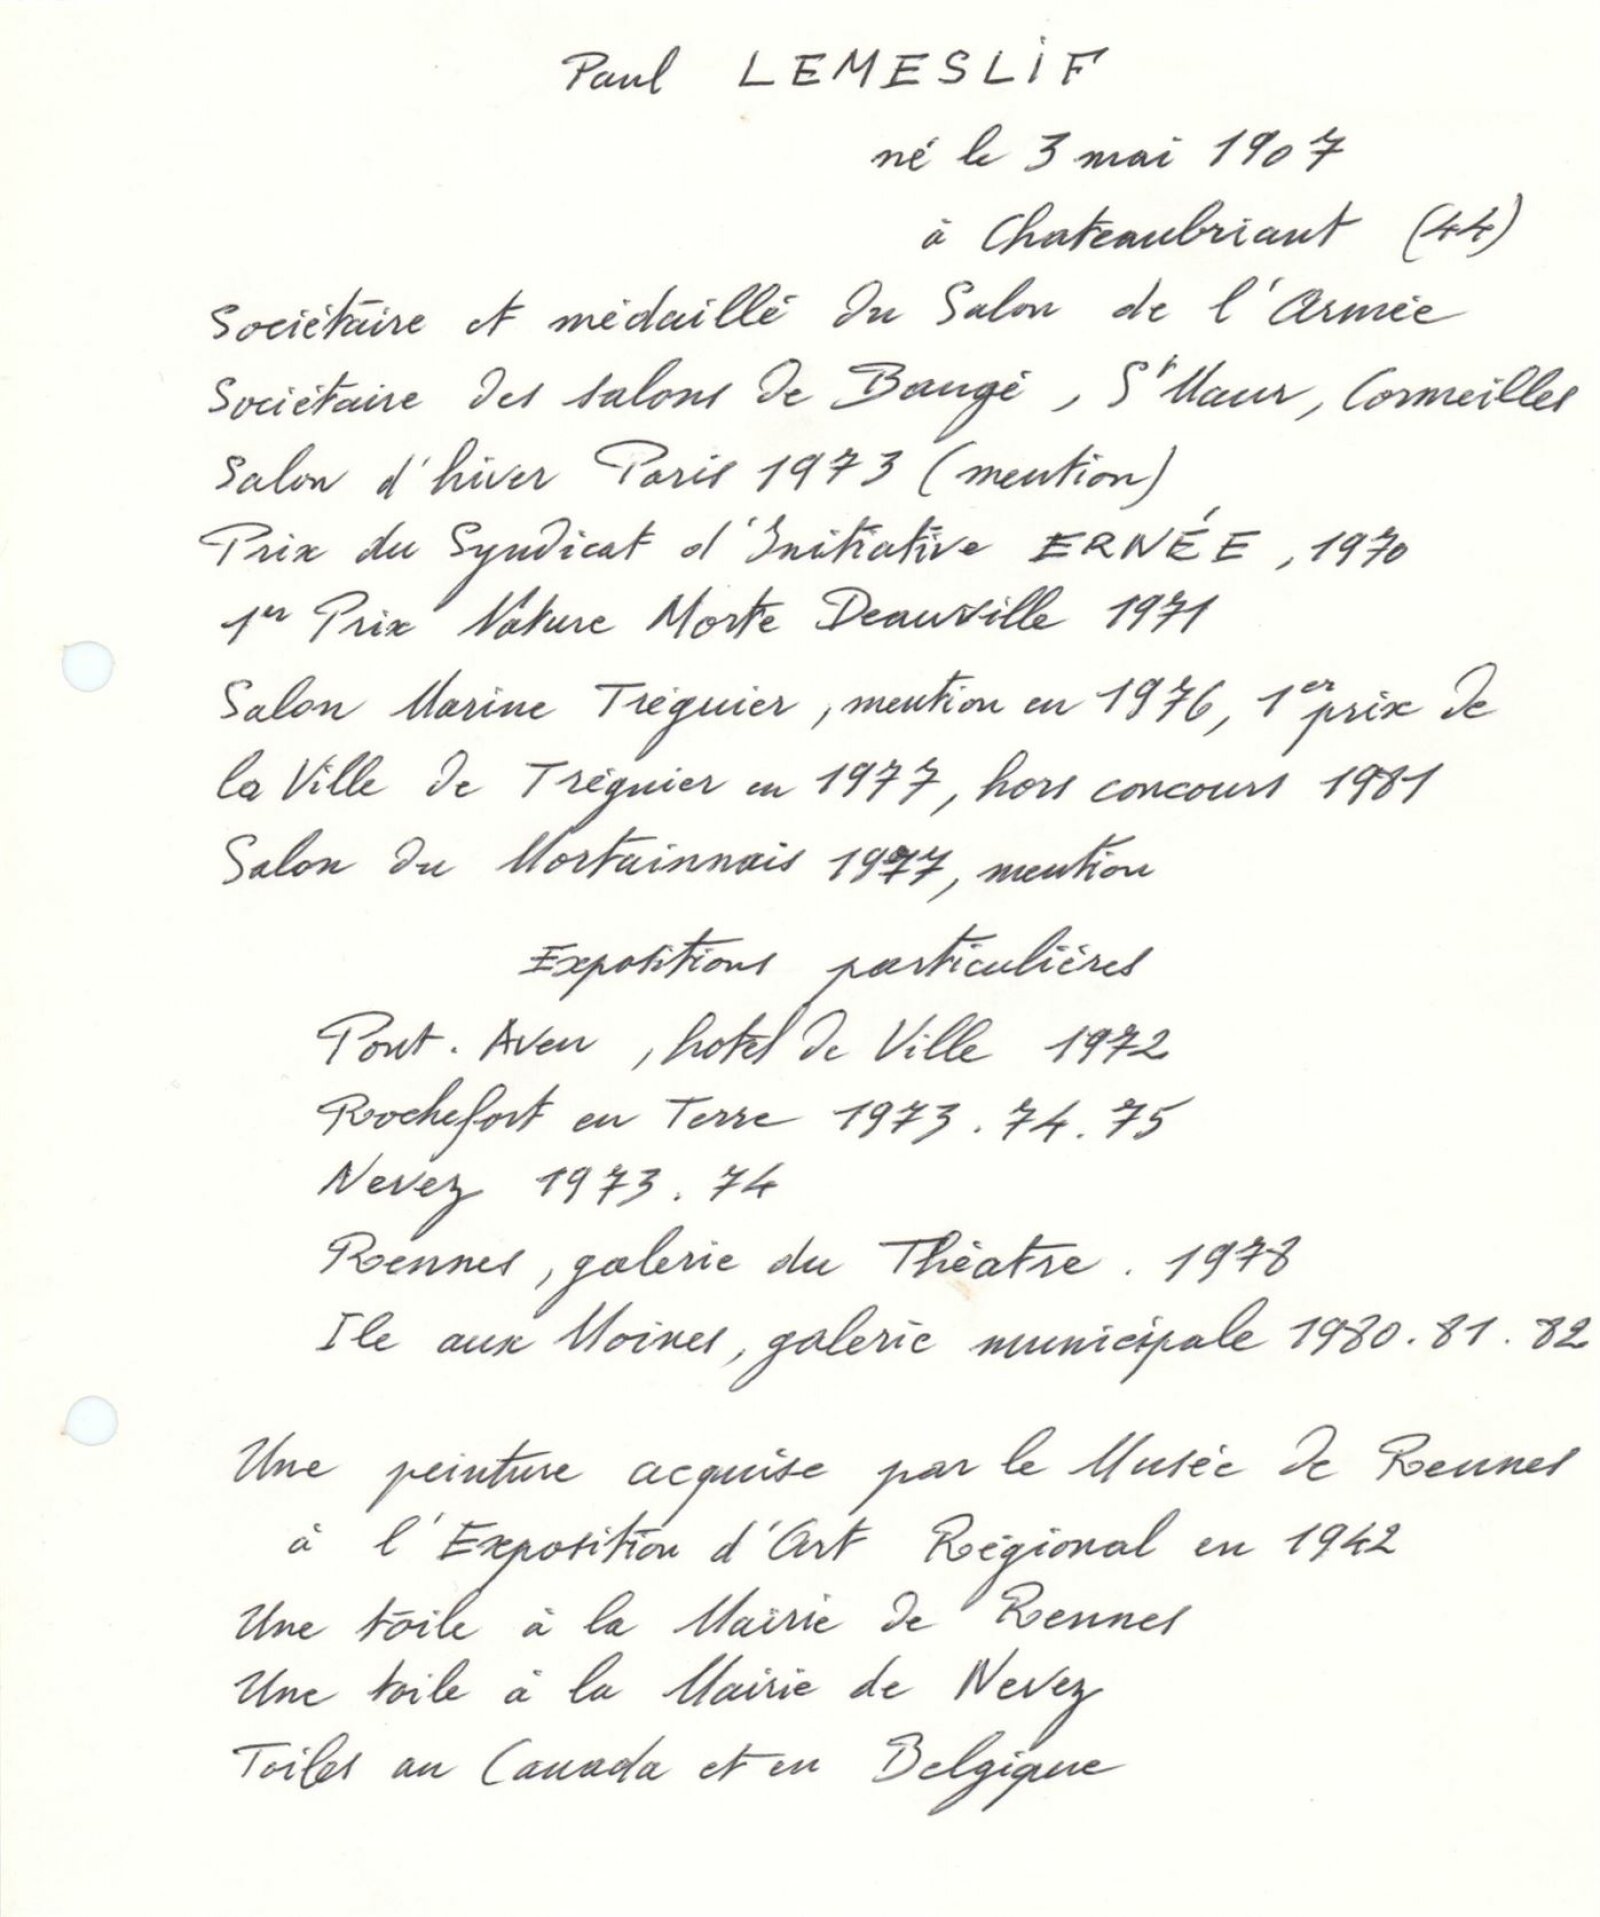 Paul LEMESLIF
né le 3 mai 1907
à Chateaubriant (44)
Sociétaire et médaillé du Salon de l'Armée
Sociétaire des salons de Baugé, St Maur, Cormeilles
Salon d'hiver Paris 1973 (mention)
Prix du Syndicat d'Initiative ERNÉE, 1970
1er Prix Nature Morte Deauville 1971
Salon Marine Tréguier, mention en 1976, 1er prix de
la Ville de Tréguier en 1977, hors concours 1981
Salon du Mortainnais 1977, mention
Expositions particulières
Pont. Aven, hotel de Ville 1972
Rochefort en Terre 1973. 74. 75
Nevez 1973. 74
Rennes, galerie du Théatre. 1978
Ile aux Moines, galerie municipale 1980. 81. 82
Une peinture acquise par le Musée de Rennes
à l'Exposition d'Art Régional en 1942
Une toile à la Mairie de Rennes
Une toile à la Mairie de Nevez
Toiles au Canada et en Belgique